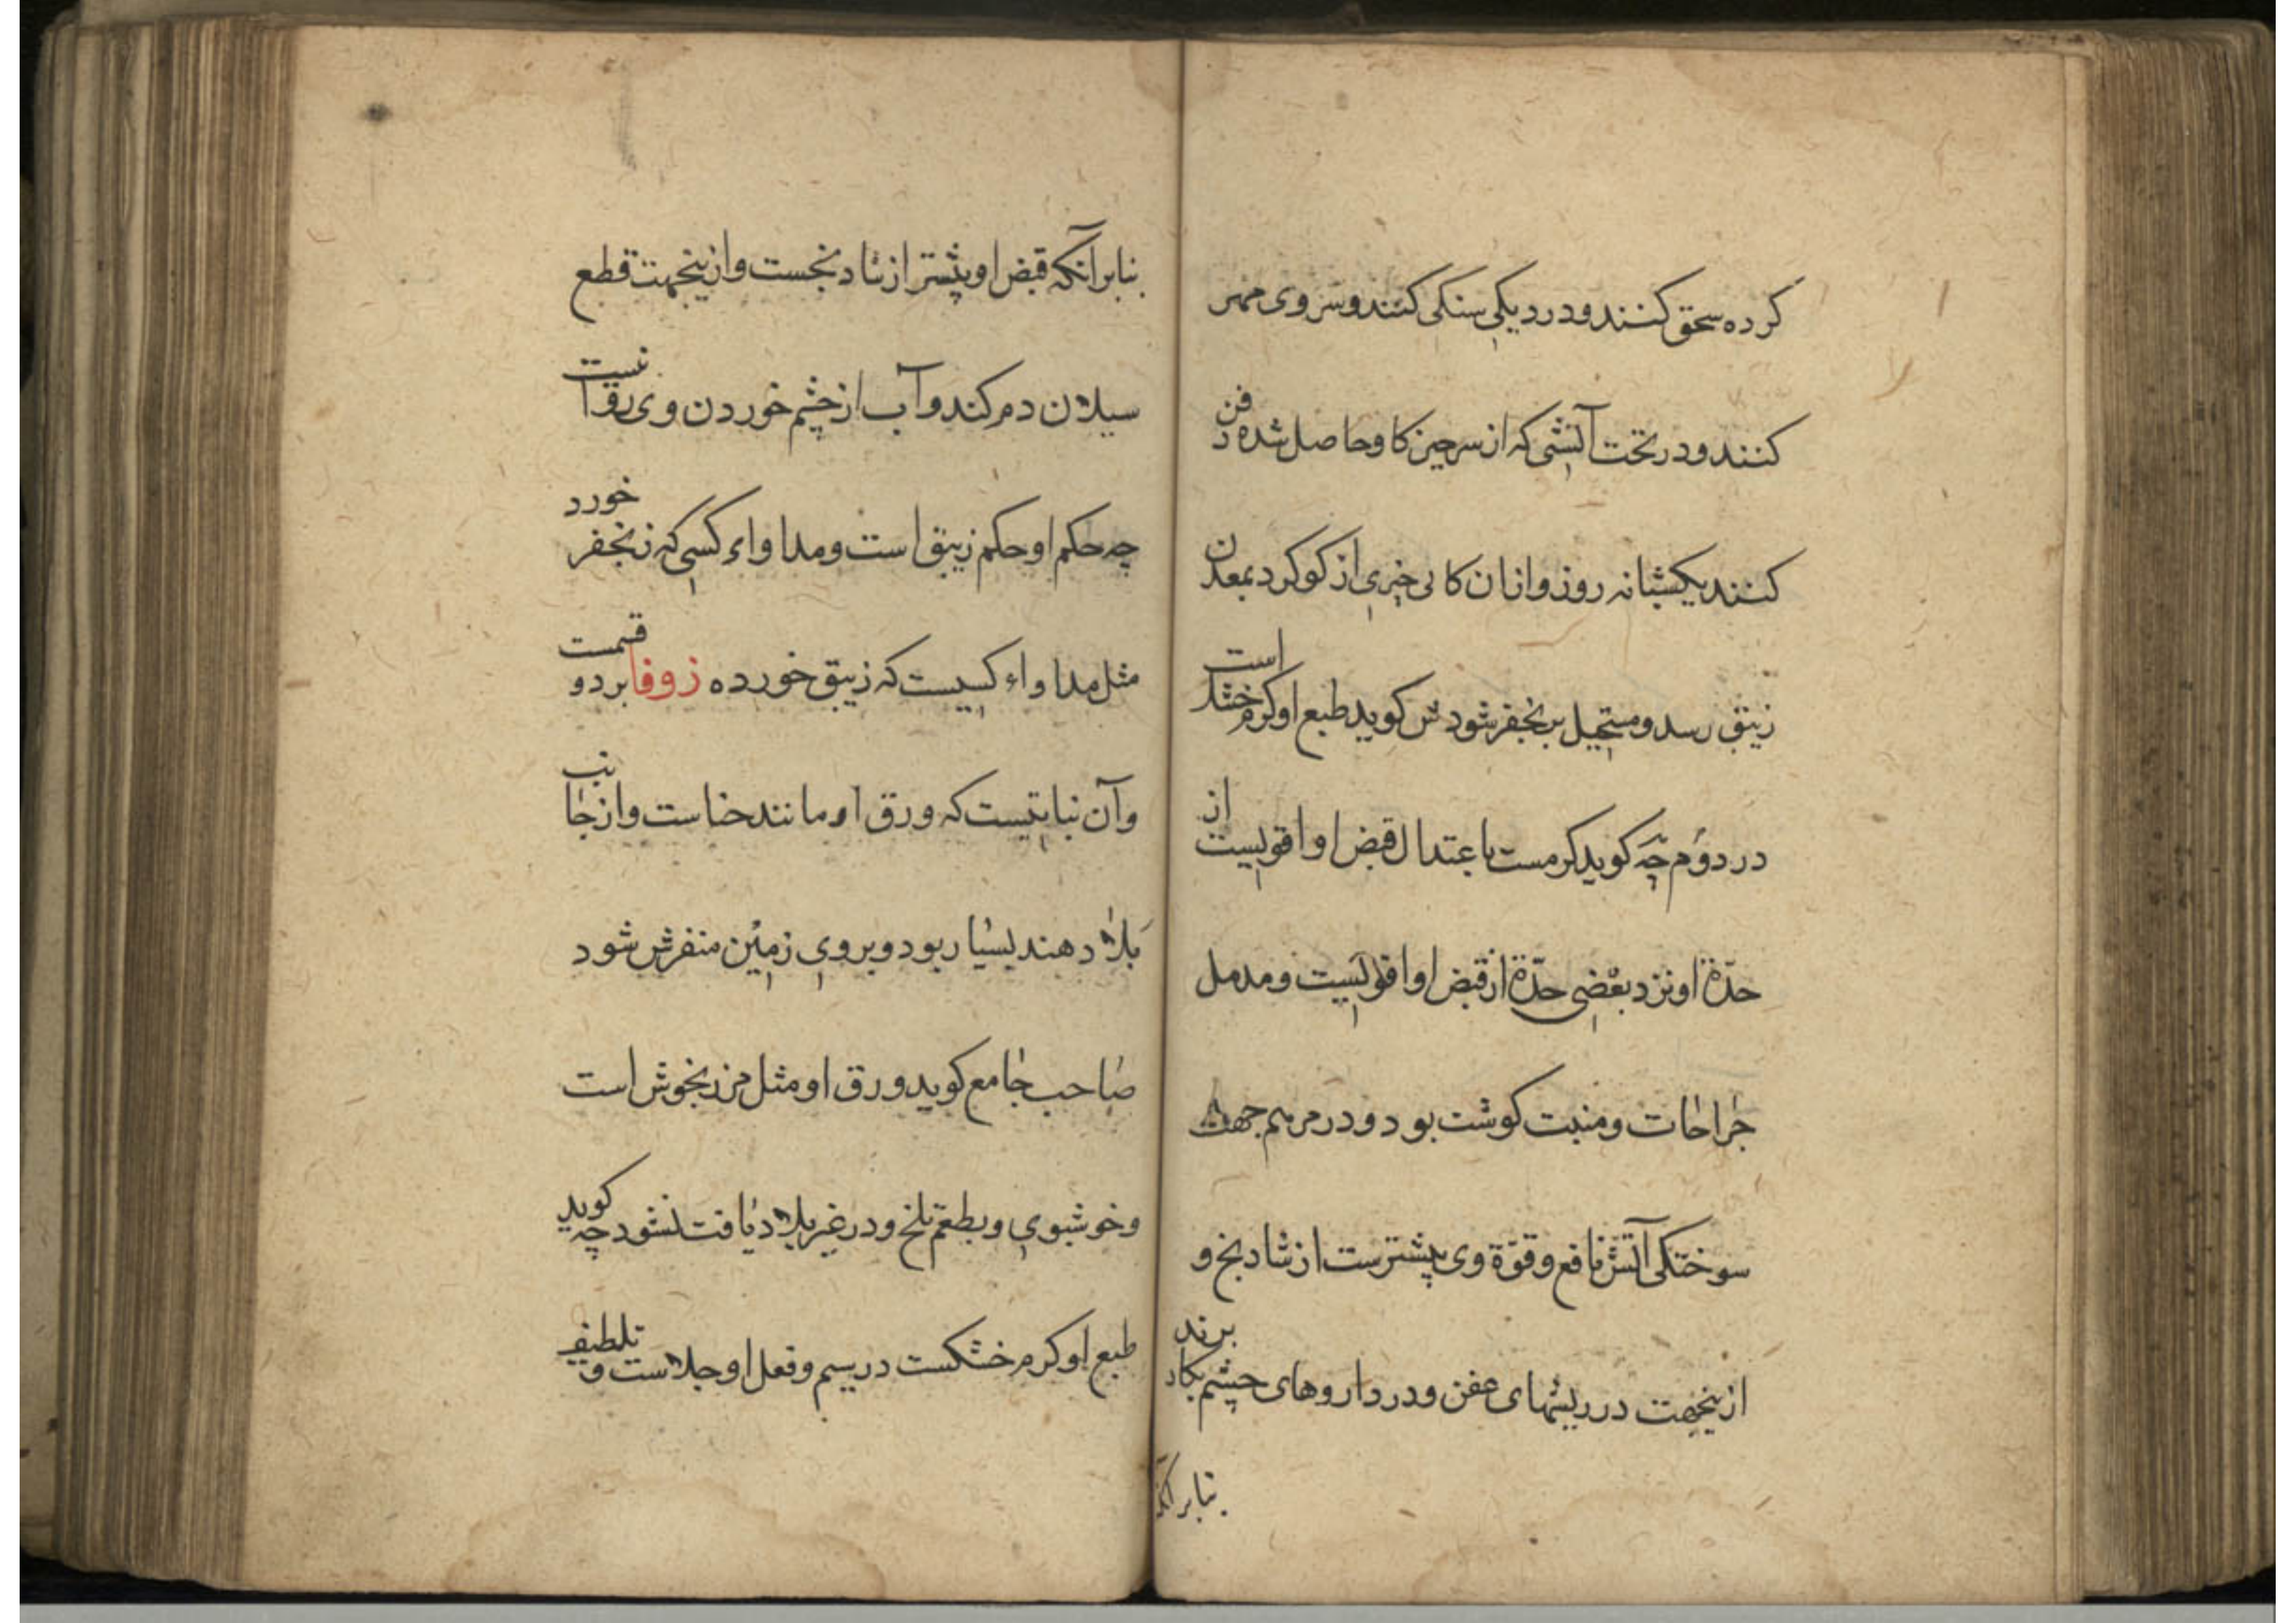 کرده سحق کنند و در دیکی سنکی کنند و سر وی مهر
کنند و در تحت آتشی که از سرجین کاو حاصل شده دفن
کنند یکشبانه روز و از ان کانی خبری از کوکرد بمعدن
زیبق رسد و مستحیل بزنجفر شود س کوید طبع او کرم خشک است
در دوم چه کوید کرمست باعتدال قبض او اقویست از
حدّة او نزد بعضی حدّة از قبض او اقویست و مدمل
جراحات و منبت کوشت بود و در مرهم جهت
سوختکی آتش نافع و قوّة وی بیشترست از شادنج و
ازینجهت در ریشهای عفن و در داروهای چشم بکار برند
بنابر آنکه
بنابر آنکه قبض او بیشتر از شادنجست و ازینجهت قطع
سیلان دم کند و آب از چشم خوردن وی روا نیست
چه حکم او حکم زیبق است و مداواء کسی که زنجفر خورد
مثل مداواء کسیست که زیبق خورده زوفا بر دو قسمست
وآن نباتیست که ورق او مانند حناست و از جانب
بلاد هند بسیار بود و بر روی زمین منفرش شود
صاحب جامع کوید ورق او مثل مرزنجوش است
و خوشبوی و بطعم تلخ و در غیر بلاد یافت نشود چه کوید
طبع او کرم خشکست در سیم و فعل او جلاست و تلطیف